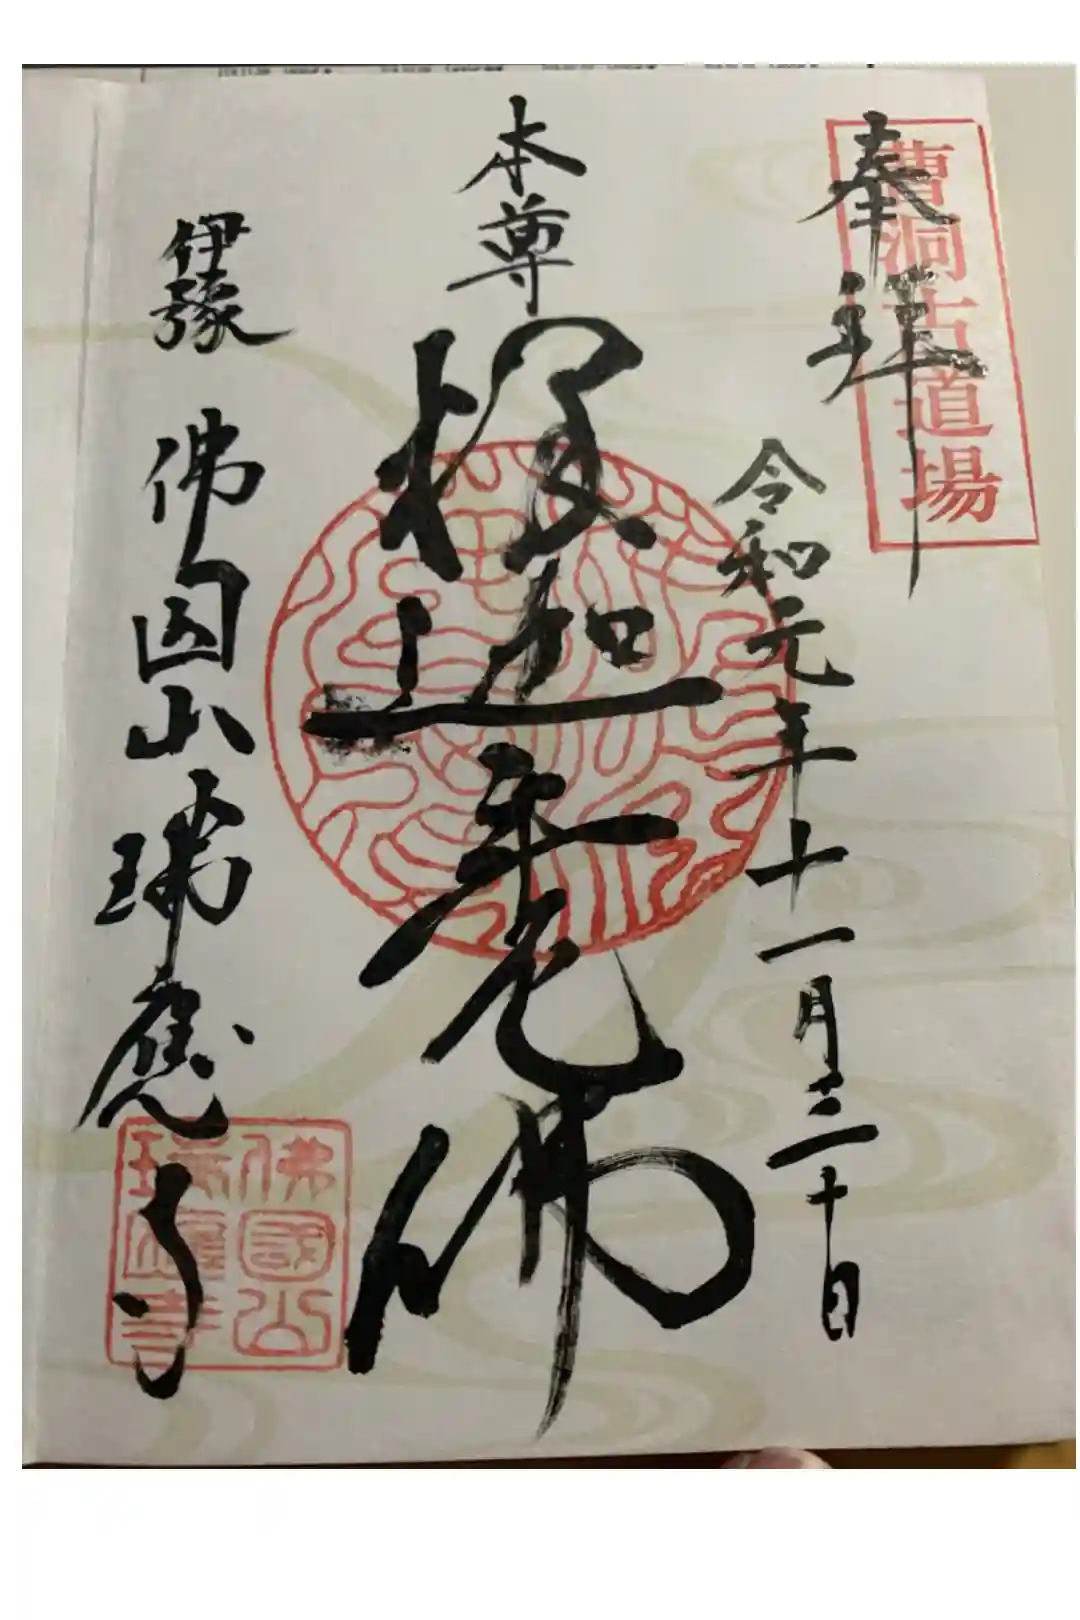 奉拝
曹洞古道場
令和元年十一月三十日
本尊
釋迦牟尼佛
伊豫
佛国山瑞應寺
佛國山
瑞應寺